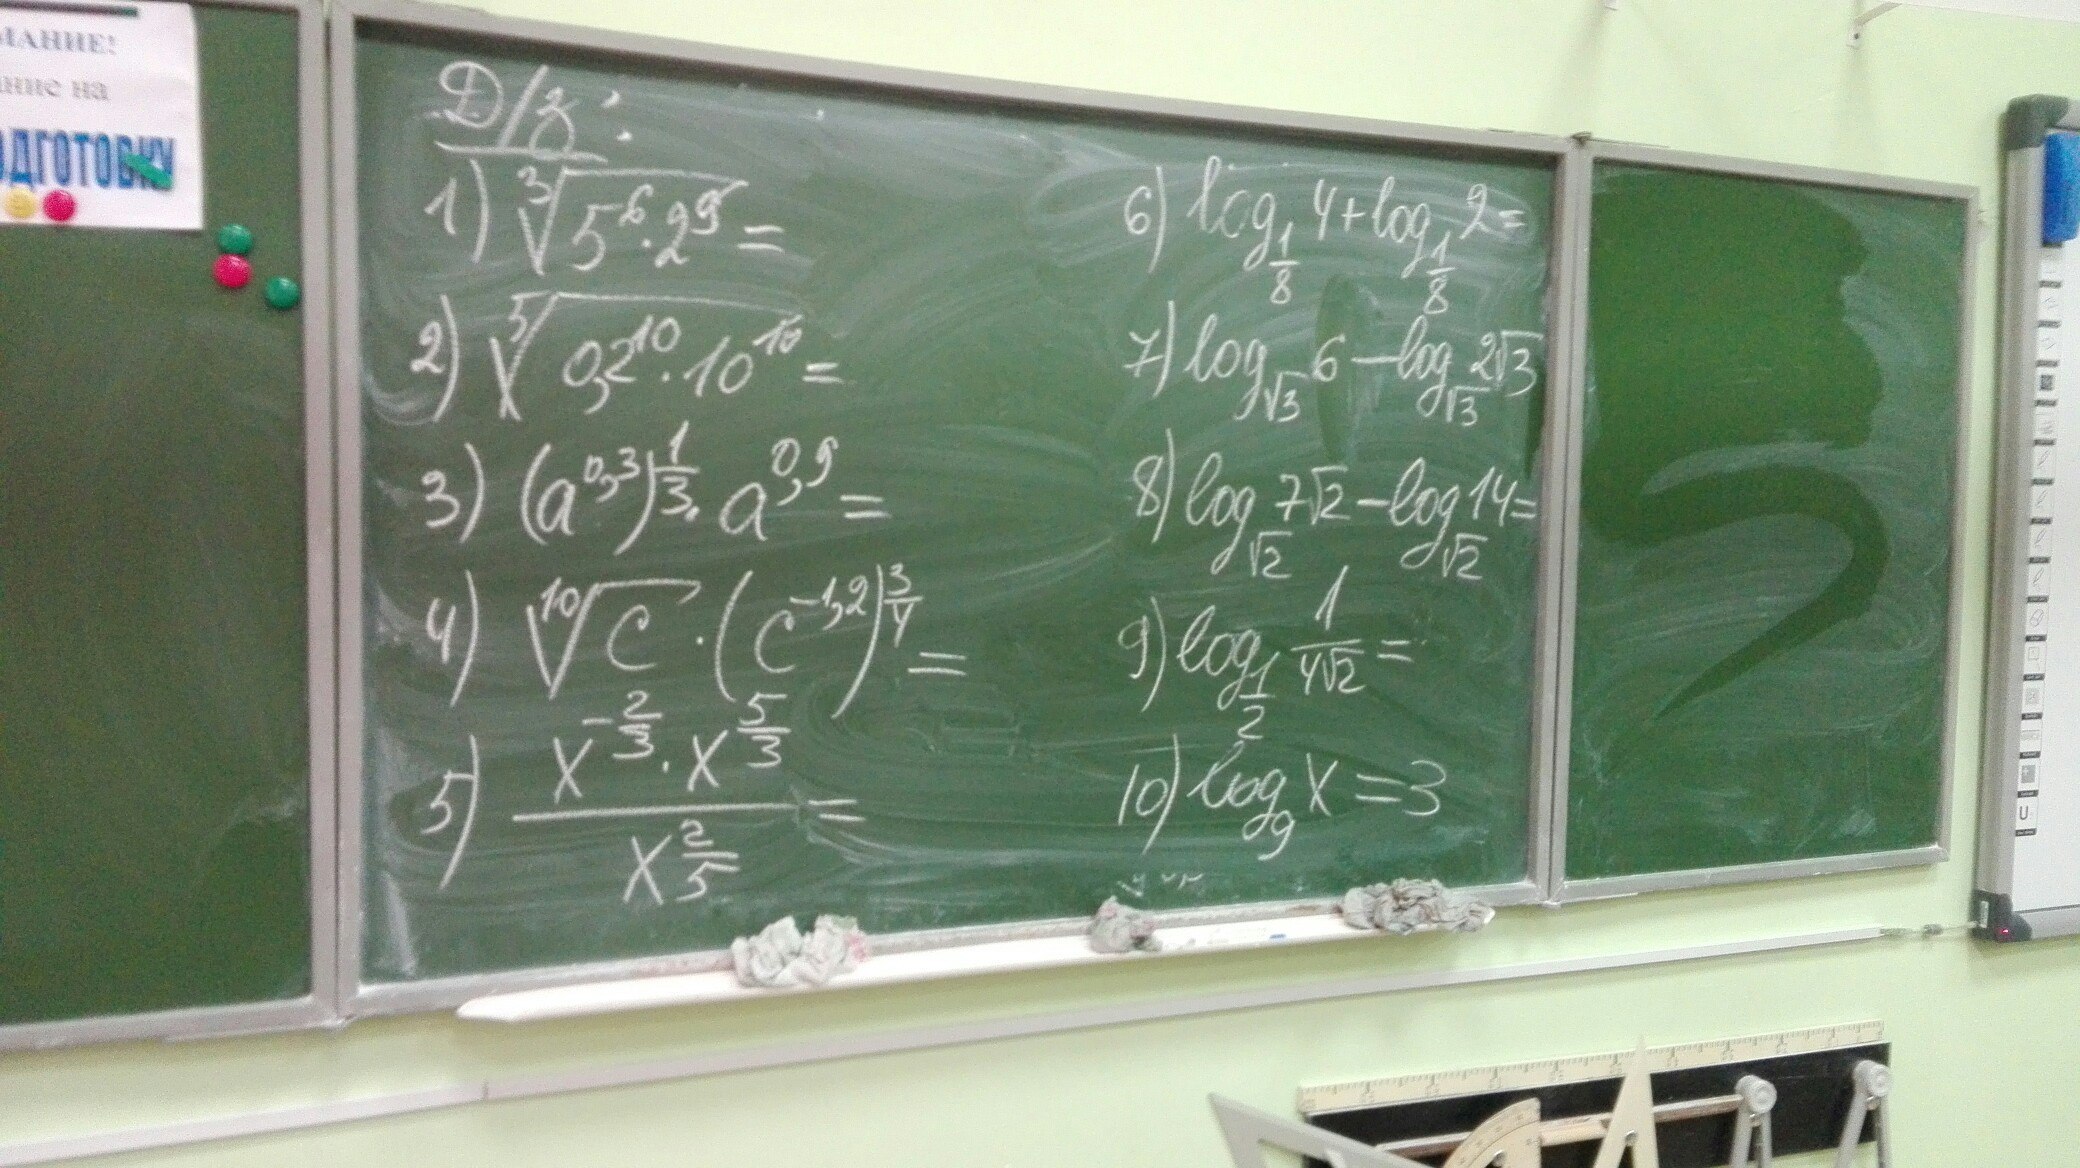 МАНИЕ!
ние на
ОДГОТОВКУ
Д/з:
1) ∛(5⁶·2⁹) =
2) ⁵√(0,2¹⁰·10¹⁰) =
3) (a^0,3)^(1/3) · a^0,9 =
4) ¹⁰√c · (c^-1,2)^(3/4) =
5) (x^(-2/3) · x^(5/3)) / x^(2/5) =
6) log_(1/8) 4 + log_(1/8) 2 =
7) log_√3 6 − log_√3 2√3
8) log_√2 7√2 − log_√2 14 =
9) log_(1/2) 1/(4√2) =
10) log_9 x = 3